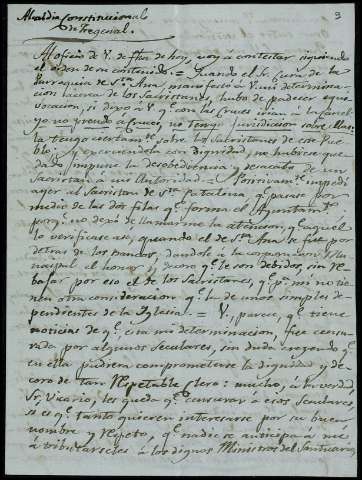 Alcaldia Constitucional
de Fregenal.
9
Al oficio de V. de fha de hoy, voy á contestar siguiendo
el órden de su contenido. = Cuando el Sr. Cura de la
Parroquia de Sta. Ana, manifestó á V. mi determina-
cion acerca de los Sacristanes, hubo de padecer equi-
vocacion, si dijo á V. qe. con las Cruces irian á la
yo no prendo á Cruces, no tengo jurisdiccion sobre
la tengo ciertamte. sobre los Sacristanes de este Pue-
blo, y ejerciendola con dignidad, no hubiera que-
dado impune la desobediencia y desacato de un
Sacristan á mi Autoridad.
al Sacristan de Sta. Catalina, qe. pasase por
medio de las dos filas qe. forma el Ayuntamto.
porqe. no dejó de llamarme la atencion, qe. aquel
lo verificase así, cuando el de Sta. Ana se fue por
detras de los bancos, dandole á la corporacion Mu-
nicipal el honor y decoro qe. le son debidos, sin re-
bajar por eso el de los Sacristanes, qe. pa. mi no tie-
nen otra consideracion qe. la de unos simples de-
pendientes de la Iglesia. = V., parece, qe. tiene
noticias de qe. esta mi determinacion, fue censu-
rada por algunos seculares, sin duda creyendo qe.
en ella pudiera comprometerse la dignidad y de-
coro de tan respetable Clero: mucho, á la verdad,
Sr. Vicario, les queda qe. censurar á esos seculares,
si es qe. tanto quieren interesarse por su buen
nombre y respeto, qe. nadie se anticipa á mi
á tributarseles á los dignos Ministros del Santuario,